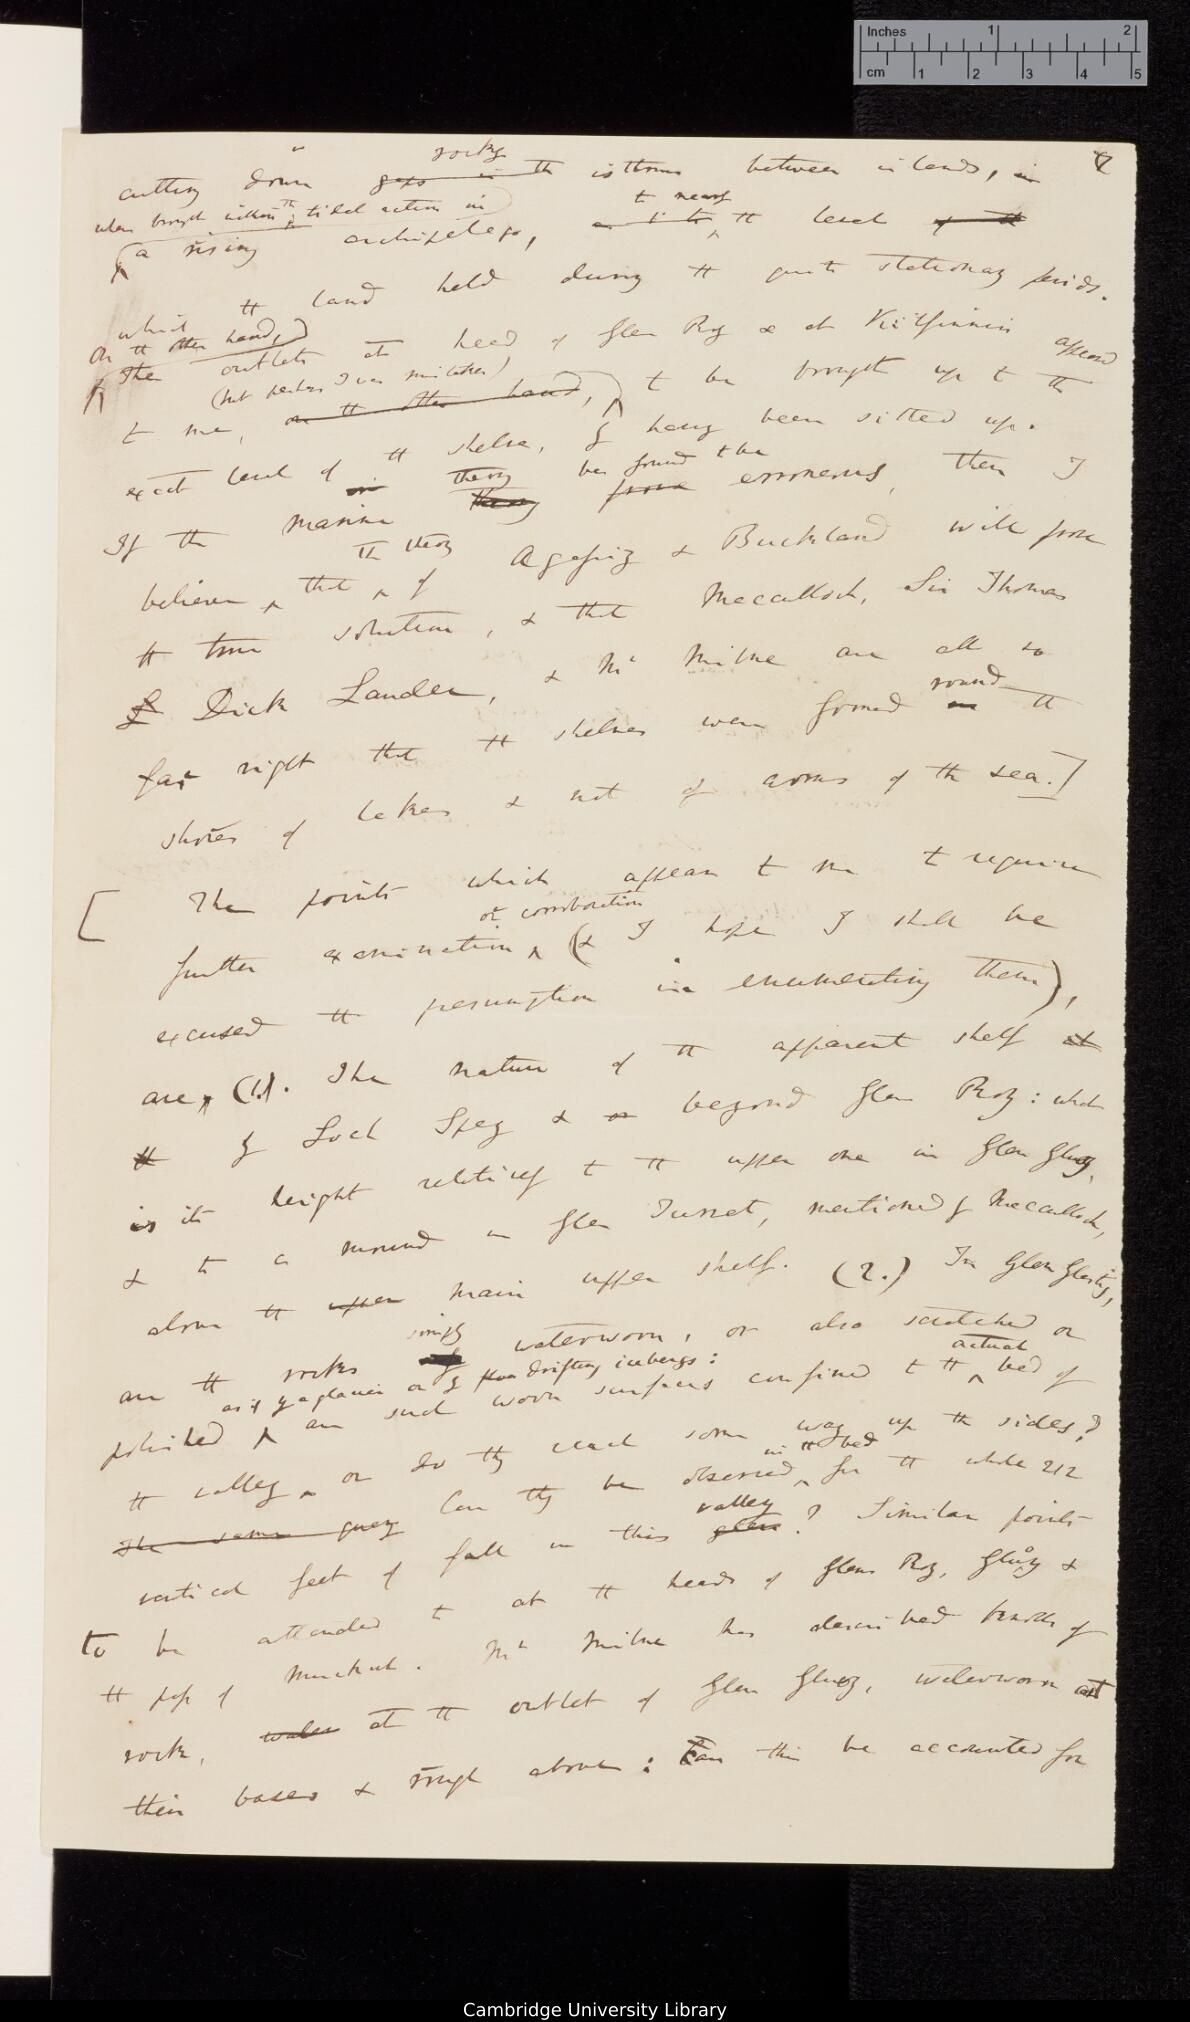 Inches 1 2
cm 1 2 3 4 5
7
rocky
cutting down gaps in th isthmus between islands, in
when brought within th tidal action in
t nearly
a rising archipelago, tt level of tt
which tt land held during tt quite stationary periods.
On tt other hand,
The outlets at head of Glen Roy & at Kilfinnin appeared
(but perhaps I was mistaken)
t me, on tt other hand, t be brought up t th
exact level of tt shelve, by having been silted up.
theory be found t be
If the marine theory prove erroneous, then I
th theory
believe that of Agassiz & Buckland will prove
tt true solution, & that Macculloch, Sir Thomas
Dick Lauder, & Mr Milne are all so
round
far right that tt shelves were formed on tt
shores of lakes & not of arms of th sea.]
[ The points which appear t me t require
or corroboration
further examination, (& I hope I shall be
excused tt presumption in enumerating them),
are, (1.). The nature of tt apparent shelf at
tt by Loch Spey & or beyond Glen Roy: what
is its height relatively t tt upper one in Glen Gluoy,
& to a mound in Glen Turret, mentioned by Macculloch,
above tt upper main upper shelf. (2.) In Glen Glastig,
simply
are tt rocks waterworn, or also scratched or
as if by a glacier or by drifting icebergs:
actual
polished are such worn surfaces confined t tt bed of
tt valley, or do thy reach some way up th sides?
in tt bed
The same query Can thy be observed, for tt whole 212
valley
vertical feet of fall in this glen? Similar points
to be attended t at tt heads of Glens Roy, Gluoy &
tt pass of Muckul. Mr Milne has described knolls of
rock, water at tt outlet of Glen Gluoy, waterworn at
their bases & rough above: Can this be accounted for
Cambridge University Library